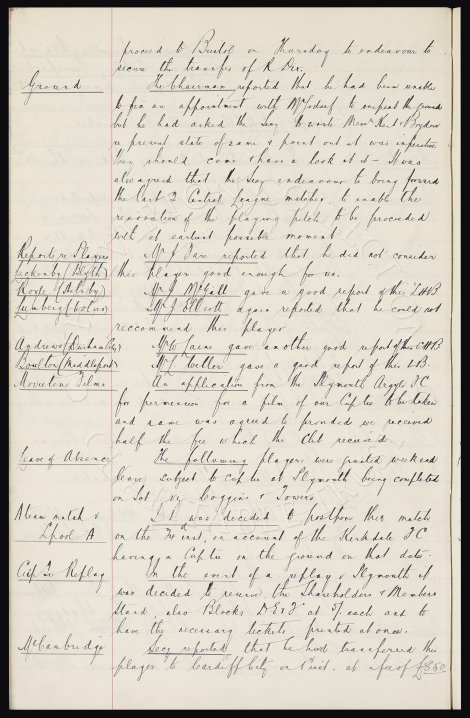 proceed to Bristol on Thursday to endeavour to
secure the transfer of R Dix.
Ground
The Chairman reported that he had been unable
to fix an appointment with Mr to inspect the ground
but he had asked the Secy to write Messrs Kent &
re present state of same & point out it was imperative
they should come & have a look at it - It was
also agreed that the Secy endeavour to bring forward
the last 2 Central League matches, to enable the
renovation of the playing pitch to be proceeded
with at earliest possible moment.
Reports re Players
Mr J Fare reported that he did not consider
(Blyth)
this player good enough for us.
Mr J McFall gave a good report of this LHB
Mr J Elliott again reported that he could not
reccommend this player
Andrews (Durham City)
Mr C Fare gave another good report of this CHB
Boulton (Middleport)
Mr L gave a good report of this LB.
Movietone Films
An application from the Plymouth Argyle FC
for permission for a film of our Cup tie to be taken
and same was agreed to provided we received
half the fee which the Club received
Leave of Absence
The following players were granted weekend
leave subject to cup tie at Plymouth being completed
on Sat viz Coggins & Towers.
A team match v
It was decided to postpone this match
Lpool A
on the inst, on account of the Kirkdale FC
having a Cup tie on the ground on that date.
Cup Tie Replay
In the event of a replay v Plymouth it
was decided to reserve the Shareholders & Members
Stand, also Blocks D E & F at 5/- each and to
have the necessary tickets printed at once.
McCambridge
Secy reported that he had transferred this
player to Cardiff City on inst. at a fee of